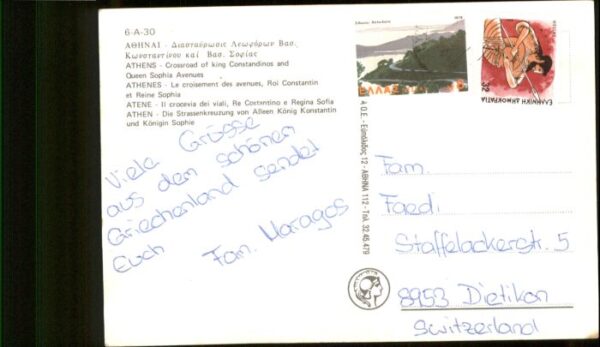 6-A-30
ΑΘΗΝΑΙ - Διασταύρωσις Λεωφόρων Βασ.
Κωνσταντίνου καί Βασ. Σοφίας
ATHENS - Crossroad of king Constandinos and
Queen Sophia Avenues
ATHENES - Le croisement des avenues, Roi Constantin
et Reine Sophia
ATENE - Il crocevia dei viali, Re Costantino e Regina Sofia
ATHEN - Die Strassenkreuzung von Alleen König Konstantin
und Königin Sophie
Viele Grüsse
aus dem schönen
Griechenland sendet
Euch
Fam. Maragos
Α.Ο.Ε. - Εὐπόλιδος 12 - ΑΘΗΝΑ 112 - Τηλ. 32 45 479
1979
ΕΛΛΑΣ HELLAS 8
ΕΛΛΗΝΙΚΗ ΔΗΜΟΚΡΑΤΙΑ
32
Fam.
Faedi
Staffelackerstr. 5
8953 Dietikon
Switzerland